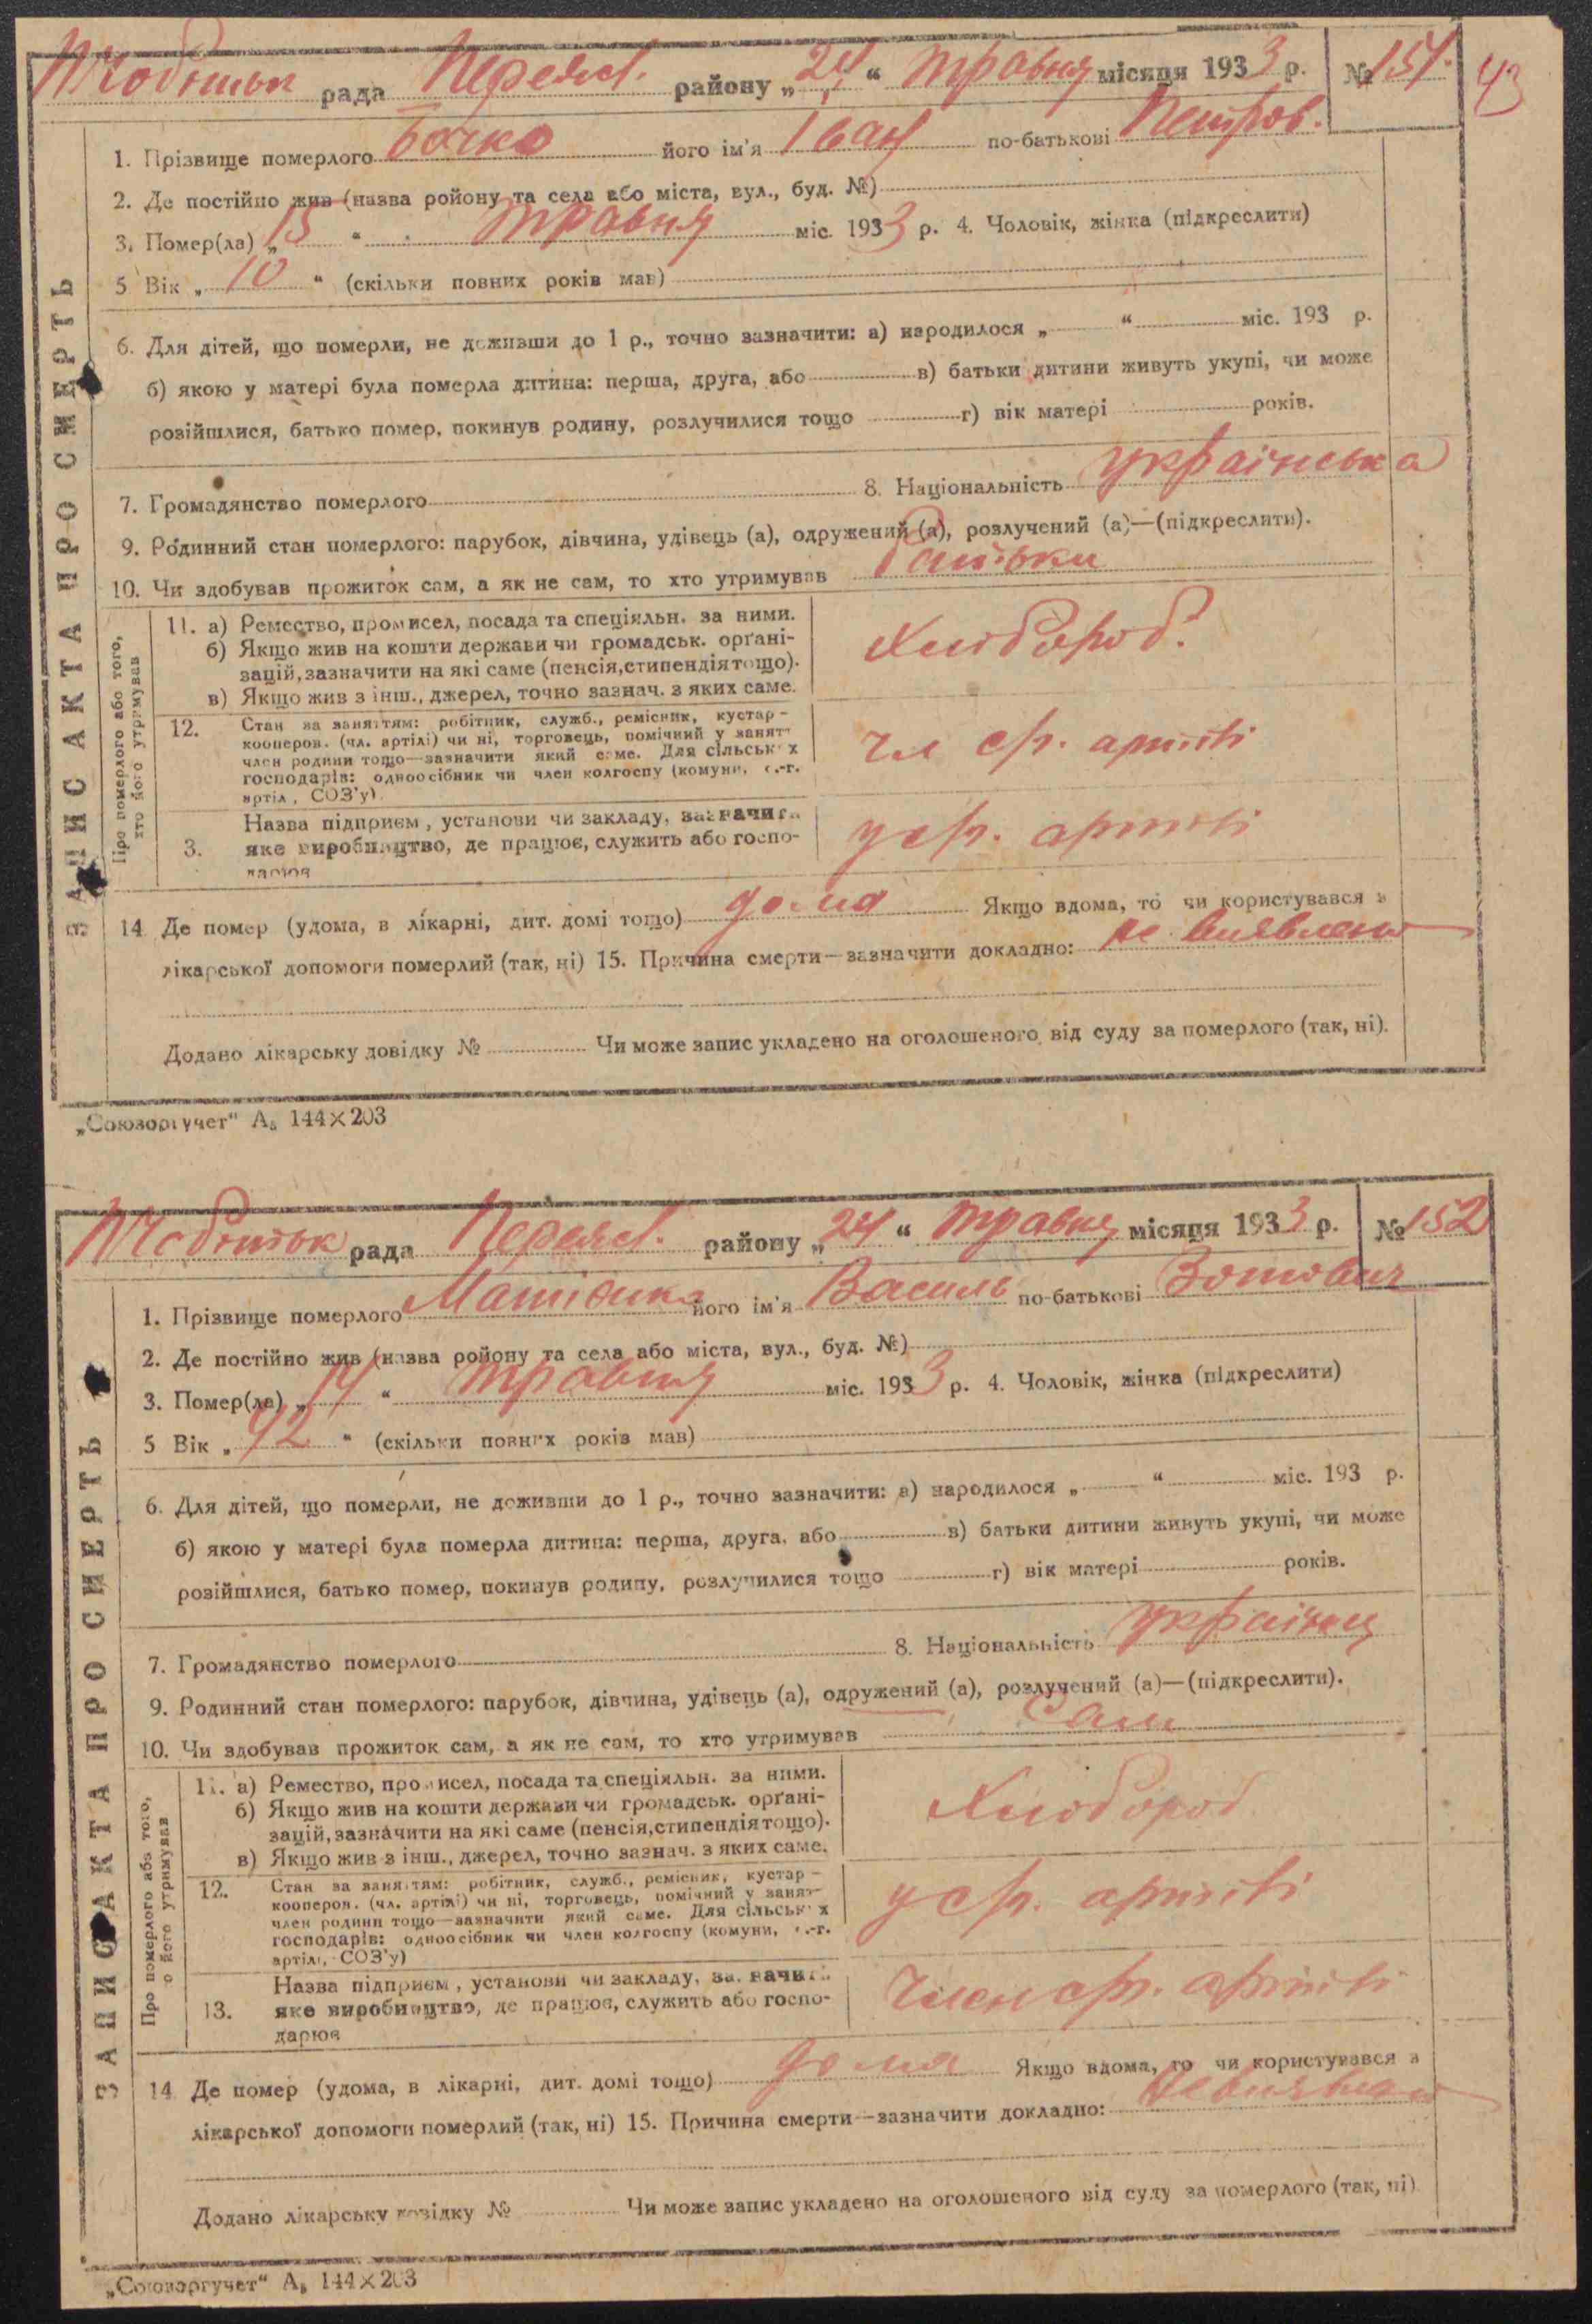 рада Переясл. району „24“ травня місяця 1933 р. № 151. 43
1. Прізвище померлого Бочко його ім'я Іван по-батькові Петров.
2. Де постійно жив (назва ройону та села або міста, вул., буд. №)
3. Помер(ла) „15“ травня міс. 1933 р. 4. Чоловік, жінка (підкреслити)
5 Вік „10“ (скільки повних років мав)
6. Для дітей, що померли, не доживши до 1 р., точно зазначити: а) народилося „ “ міс. 193 р.
б) якою у матері була померла дитина: перша, друга, або в) батьки дитини живуть укупі, чи може
розійшлися, батько помер, покинув родину, розлучилися тощо г) вік матері років.
7. Громадянство померлого 8. Національність українська
9. Родинний стан померлого: парубок, дівчина, удівець (а), одружений (а), розлучений (а)—(підкреслити).
10. Чи здобував прожиток сам, а як не сам, то хто утримував Батьки
ЗАПИС АКТА ПРО СМЕРТЬ
Про померлого або того,
хто його утримував
11. а) Ремество, промисел, посада та спеціяльн. за ними.
б) Якщо жив на кошти держави чи громадськ. орґані-
зацій, зазначити на які саме (пенсія, стипендія тощо).
в) Якщо жив з інш., джерел, точно зазнач. з яких саме.
Хлібороб.
12. Стан за заняттям: робітник, служб., ремісник, кустар –
кооперов. (чл. артілі) чи ні, торговець, помічний у занят
член родини тощо—зазначити який саме. Для сільськ х
господарів: одноосібник чи член колгоспу (комуни, с.-г.
артіл, СОЗ'у)
чл ср. артілі
3. Назва підприєм, установи чи закладу, зазначит
яке виробництво, де працює, служить або госпо-
дарює
у ср. артілі
14 Де помер (удома, в лікарні, дит. домі тощо) дома Якщо вдома, то чи користувався з
лікарської допомоги померлий (так, ні) 15. Причина смерти—зазначити докладно: не виявлено
Додано лікарську довідку № Чи може запис укладено на оголошеного від суду за померлого (так, ні).
„Союзоргучет“ А₅ 144×203
рада Переясл. району „24“ травня місяця 1933 р. № 152
1. Прізвище померлого його ім'я Василь по-батькові Зотович
2. Де постійно жив (назва ройону та села або міста, вул., буд. №)
3. Помер(ла) „14“ травня міс. 1933 р. 4. Чоловік, жінка (підкреслити)
5 Вік „42“ (скільки повних років мав)
6. Для дітей, що померли, не доживши до 1 р., точно зазначити: а) народилося „ “ міс. 193 р.
б) якою у матері була померла дитина: перша, друга, або в) батьки дитини живуть укупі, чи може
розійшлися, батько помер, покинув родину, розлучилися тощо г) вік матері років.
7. Громадянство померлого 8. Національність українец
9. Родинний стан померлого: парубок, дівчина, удівець (а), одружений (а), розлучений (а)—(підкреслити).
10. Чи здобував прожиток сам, а як не сам, то хто утримував Сам
ЗАПИС АКТА ПРО СМЕРТЬ
Про померлого або того,
о його утримував
11. а) Ремество, промисел, посада та спеціяльн. за ними.
б) Якщо жив на кошти держави чи громадськ. орґані-
зацій, зазначити на які саме (пенсія, стипендія тощо).
в) Якщо жив з інш., джерел, точно зазнач. з яких саме.
Хлібороб
12. Стан за заняттям: робітник, служб., ремісник, кустар –
кооперов. (чл. артілі) чи ні, торговець, помічний у занят–
член родини тощо—зазначити який саме. Для сільськ х
господарів: одноосібник чи член колгоспу (комуни, с.-г.
артілі, СОЗ'у)
у ср. артілі
13. Назва підприєм, установи чи закладу, зазначит
яке виробництво, де працює, служить або госпо-
дарює
Член ср. артілі
14 Де помер (удома, в лікарні, дит. домі тощо) дома Якщо вдома, то чи користувався з
лікарської допомоги померлий (так, ні) 15. Причина смерти—зазначити докладно: не виявлено
Додано лікарську довідку № Чи може запис укладено на оголошеного від суду за померлого (так, ні)
„Союзоргучет“ А₅ 144×203